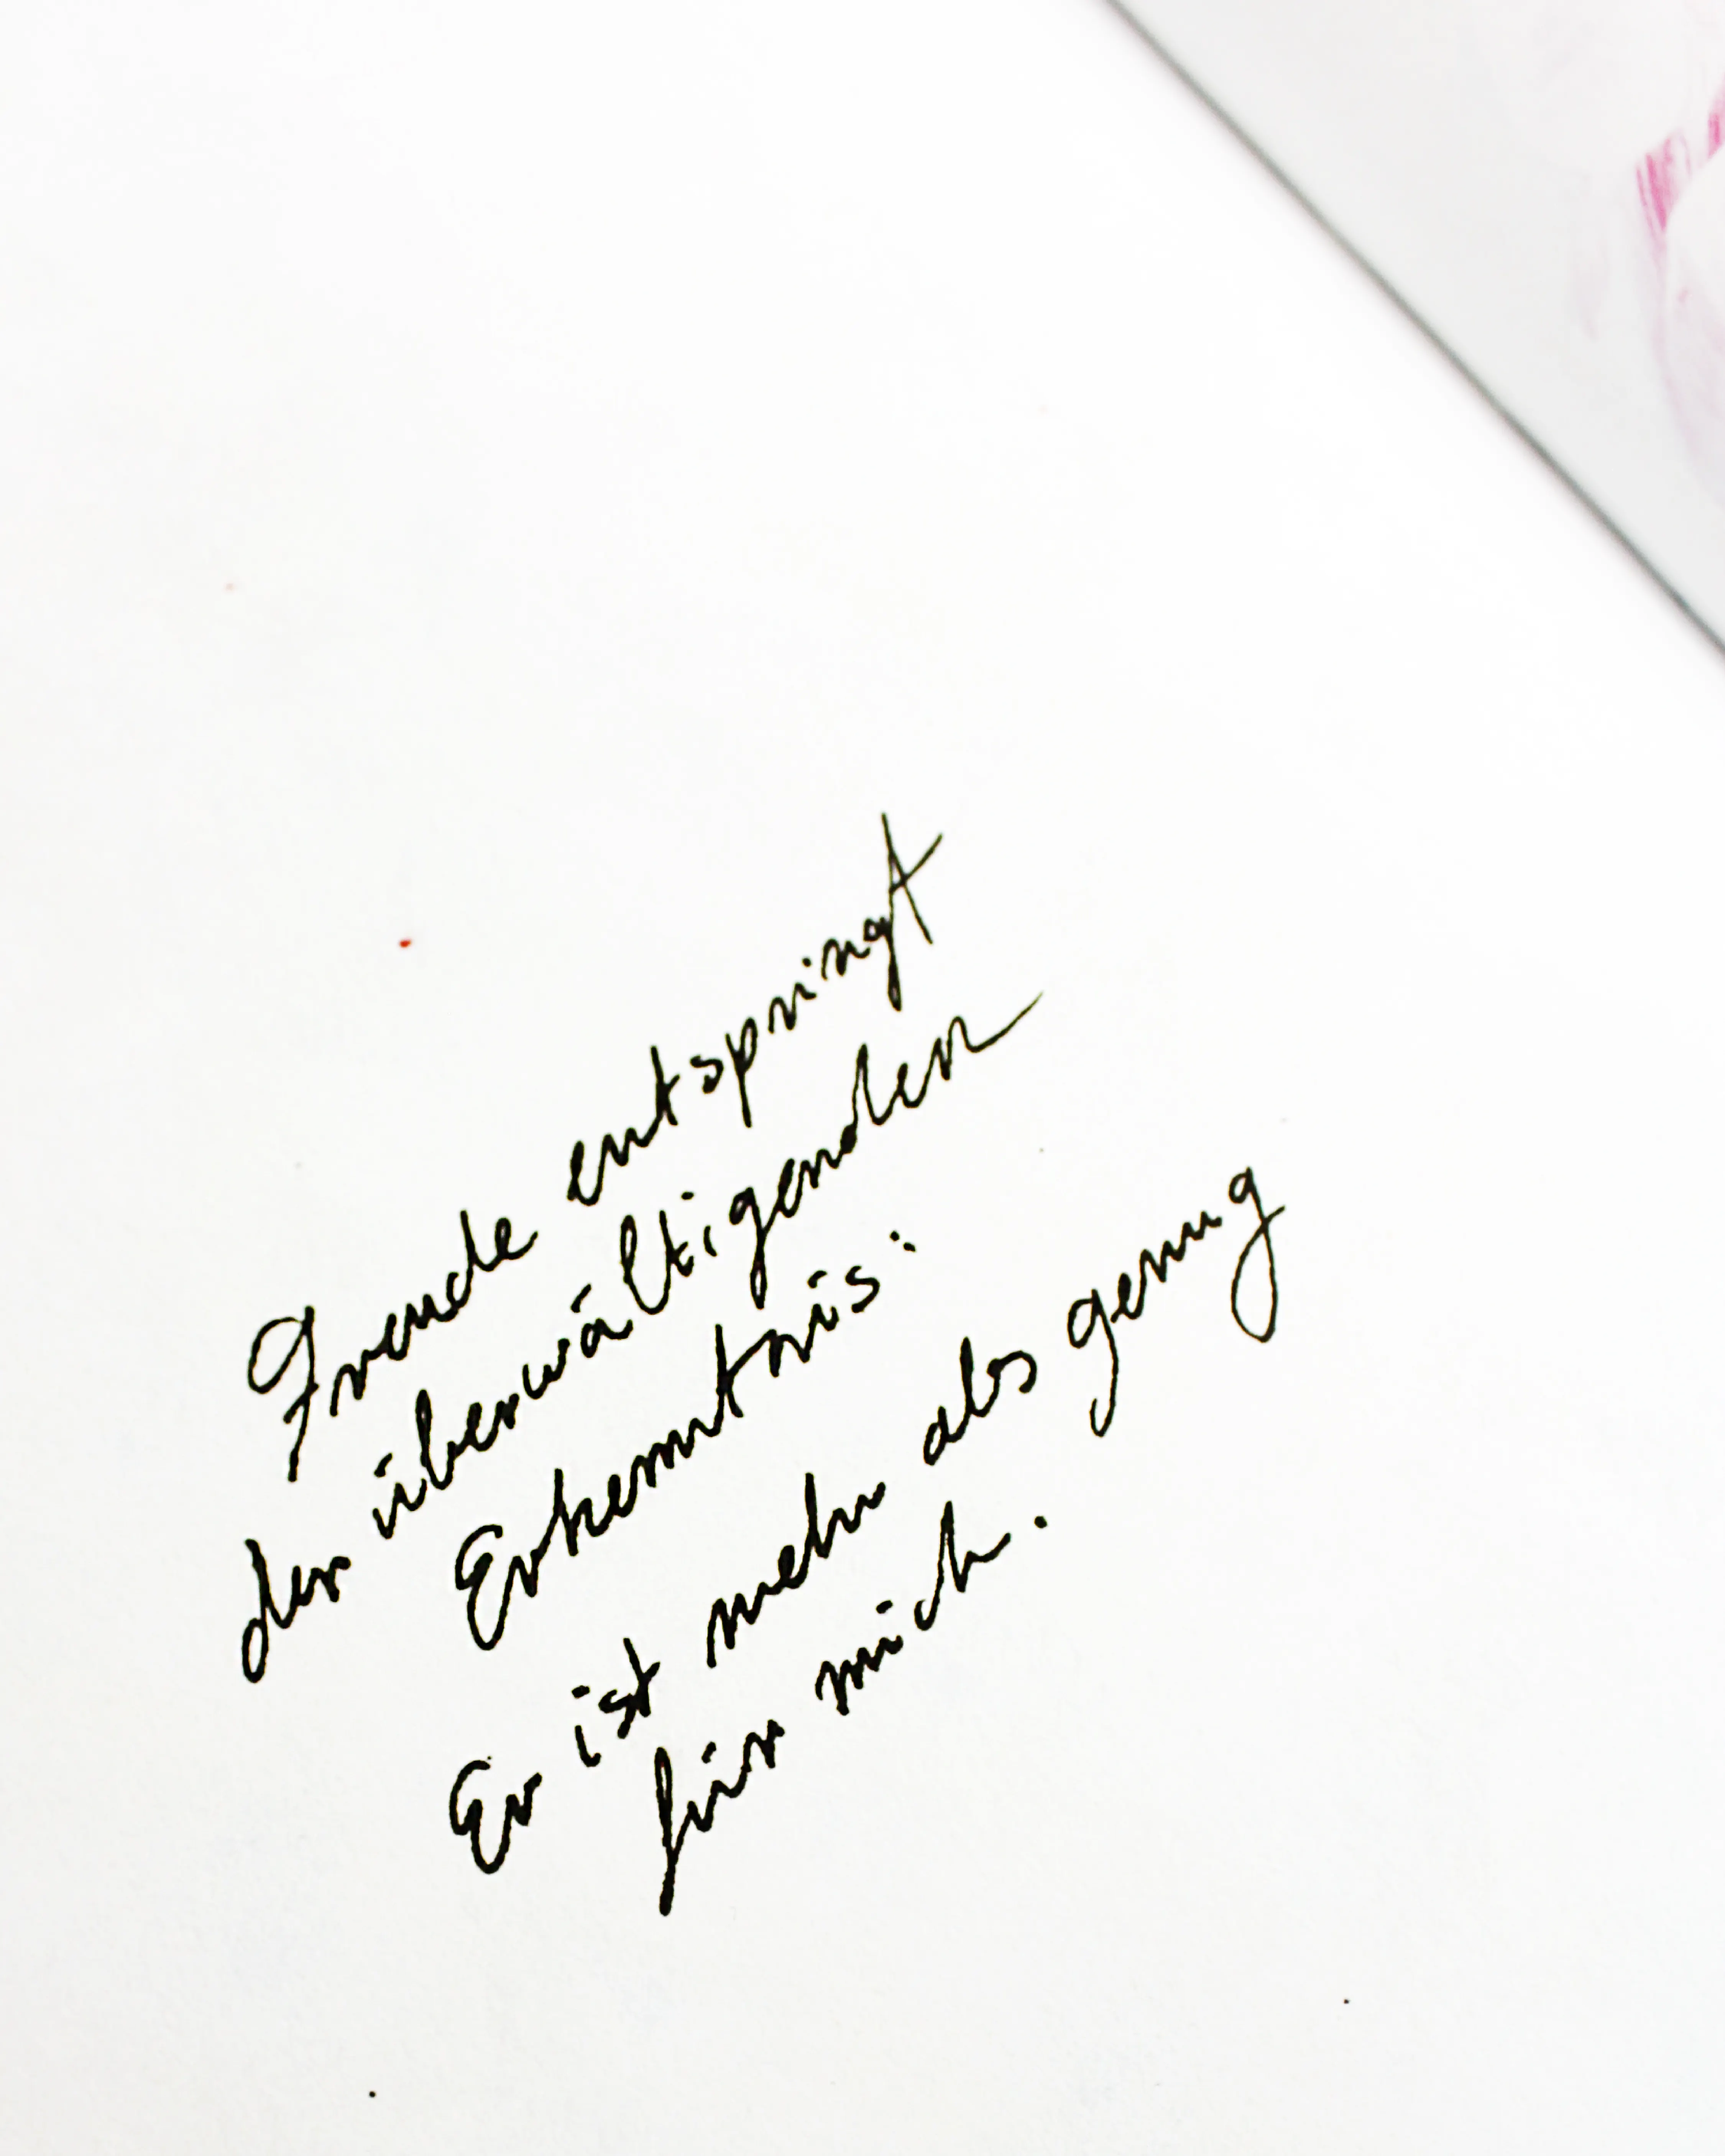 Freude entspringt
der überwältigenden
Erkenntnis:
Er ist mehr als genug
für mich.